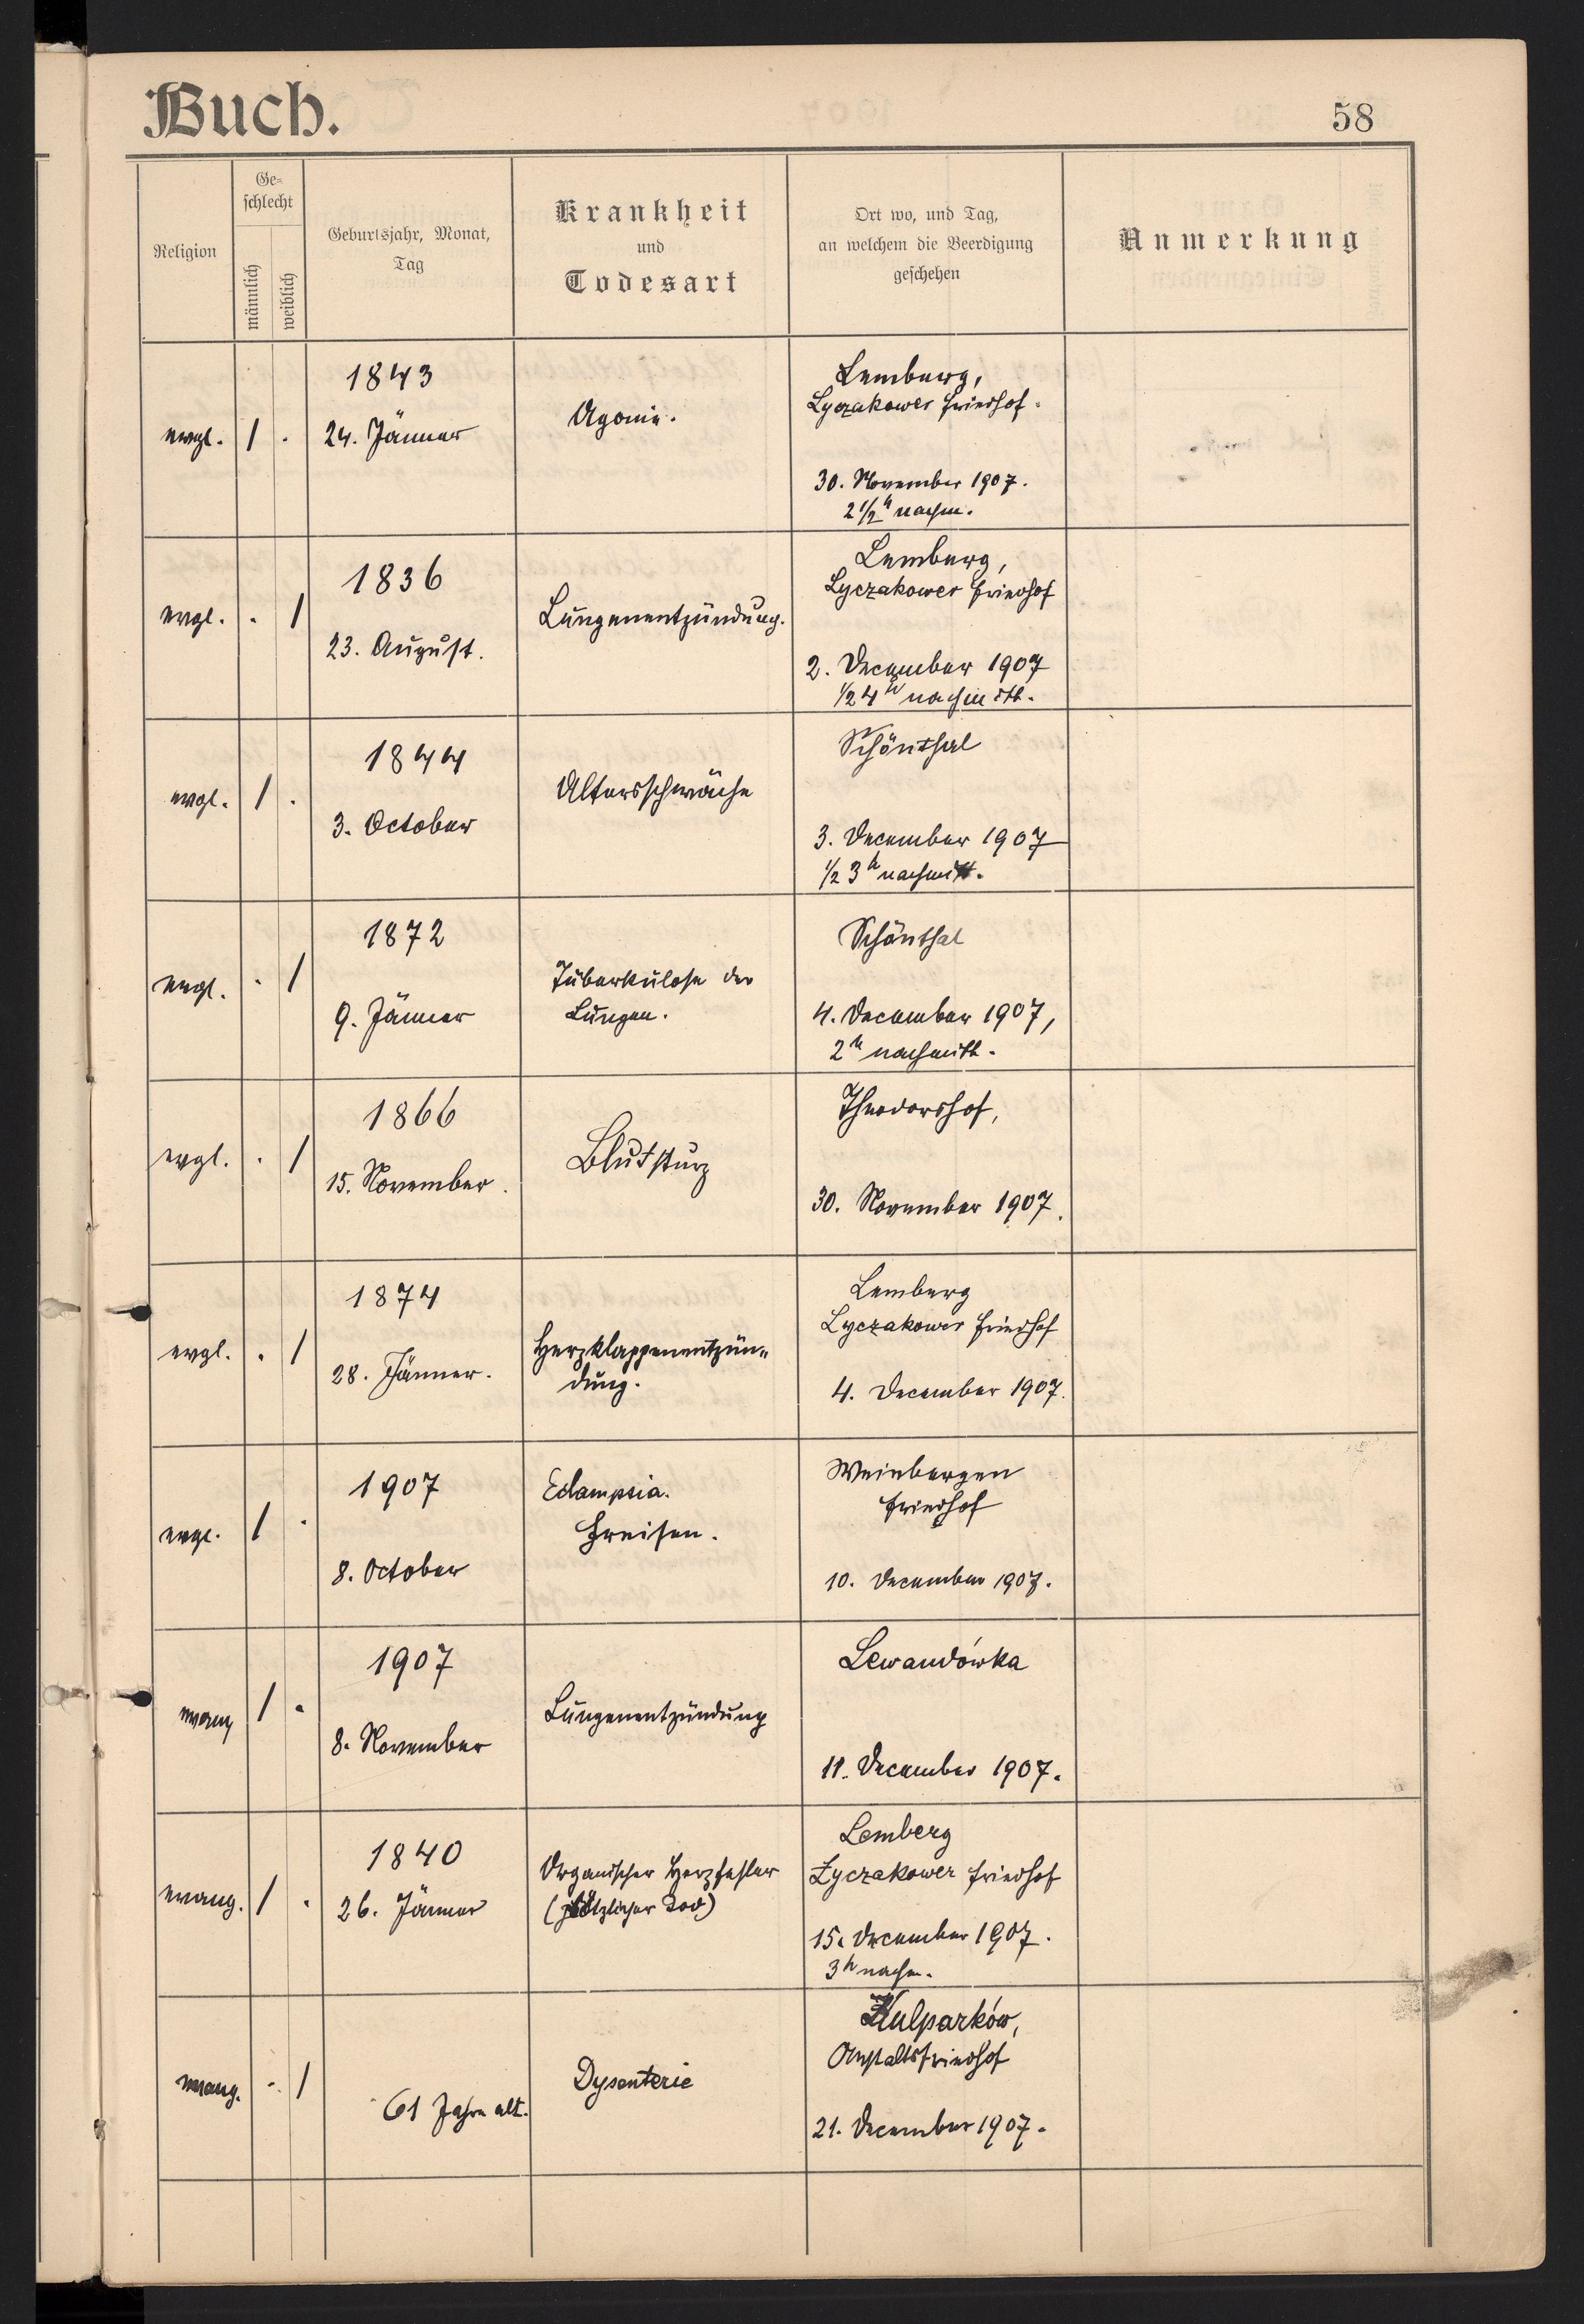 Buch.
58
Religion
Ge-
schlecht
männlich
weiblich
Geburtsjahr, Monat,
Tag
Krankheit
und
Todesart
Ort wo, und Tag,
an welchem die Beerdigung
geschehen
Anmerkung
evgl. 1 .
1843
24. Jänner
Agonie.
Lemberg,
Lyczakower Friedhof.
30. November 1907.
2 1/2 h nachm.
evgl. . 1
1836
23. August.
Lungenentzündung.
Lemberg,
Lyczakower Friedhof
2. December 1907
1/2 4 h nachmitt.
evgl. 1 .
1844
3. October
Altersschwäche
Schönthal
3. December 1907
1/2 3 h nachmitt.
evgl. . 1
1872
9. Jänner
Tuberkulose der
Lungen.
Schönthal
4. December 1907,
2 h nachmitt.
evgl. . 1
1866
15. November.
Blutsturz
Theodorshof,
30. November 1907.
evgl. . 1
1874
28. Jänner.
Herzklappenentzün-
dung.
Lemberg
Lyczakower Friedhof
4. December 1907.
evgl. 1 .
1907
8. October
Eclampsia.
Freisen.
Weinbergen
Friedhof
10. December 1907.
evang 1 .
1907
8. November
Lungenentzündung
Lewandówka
11. December 1907.
evang. 1 .
1840
26. Jänner
Organischer Herzfehler
(plötzlicher Tod)
Lemberg
Łyczakower Friedhof
15. December 1907.
3 h nachm.
evang. . 1
61 Jahre alt.
Dysenterie
Kulparków,
Anstaltsfriedhof
21. December 1907.